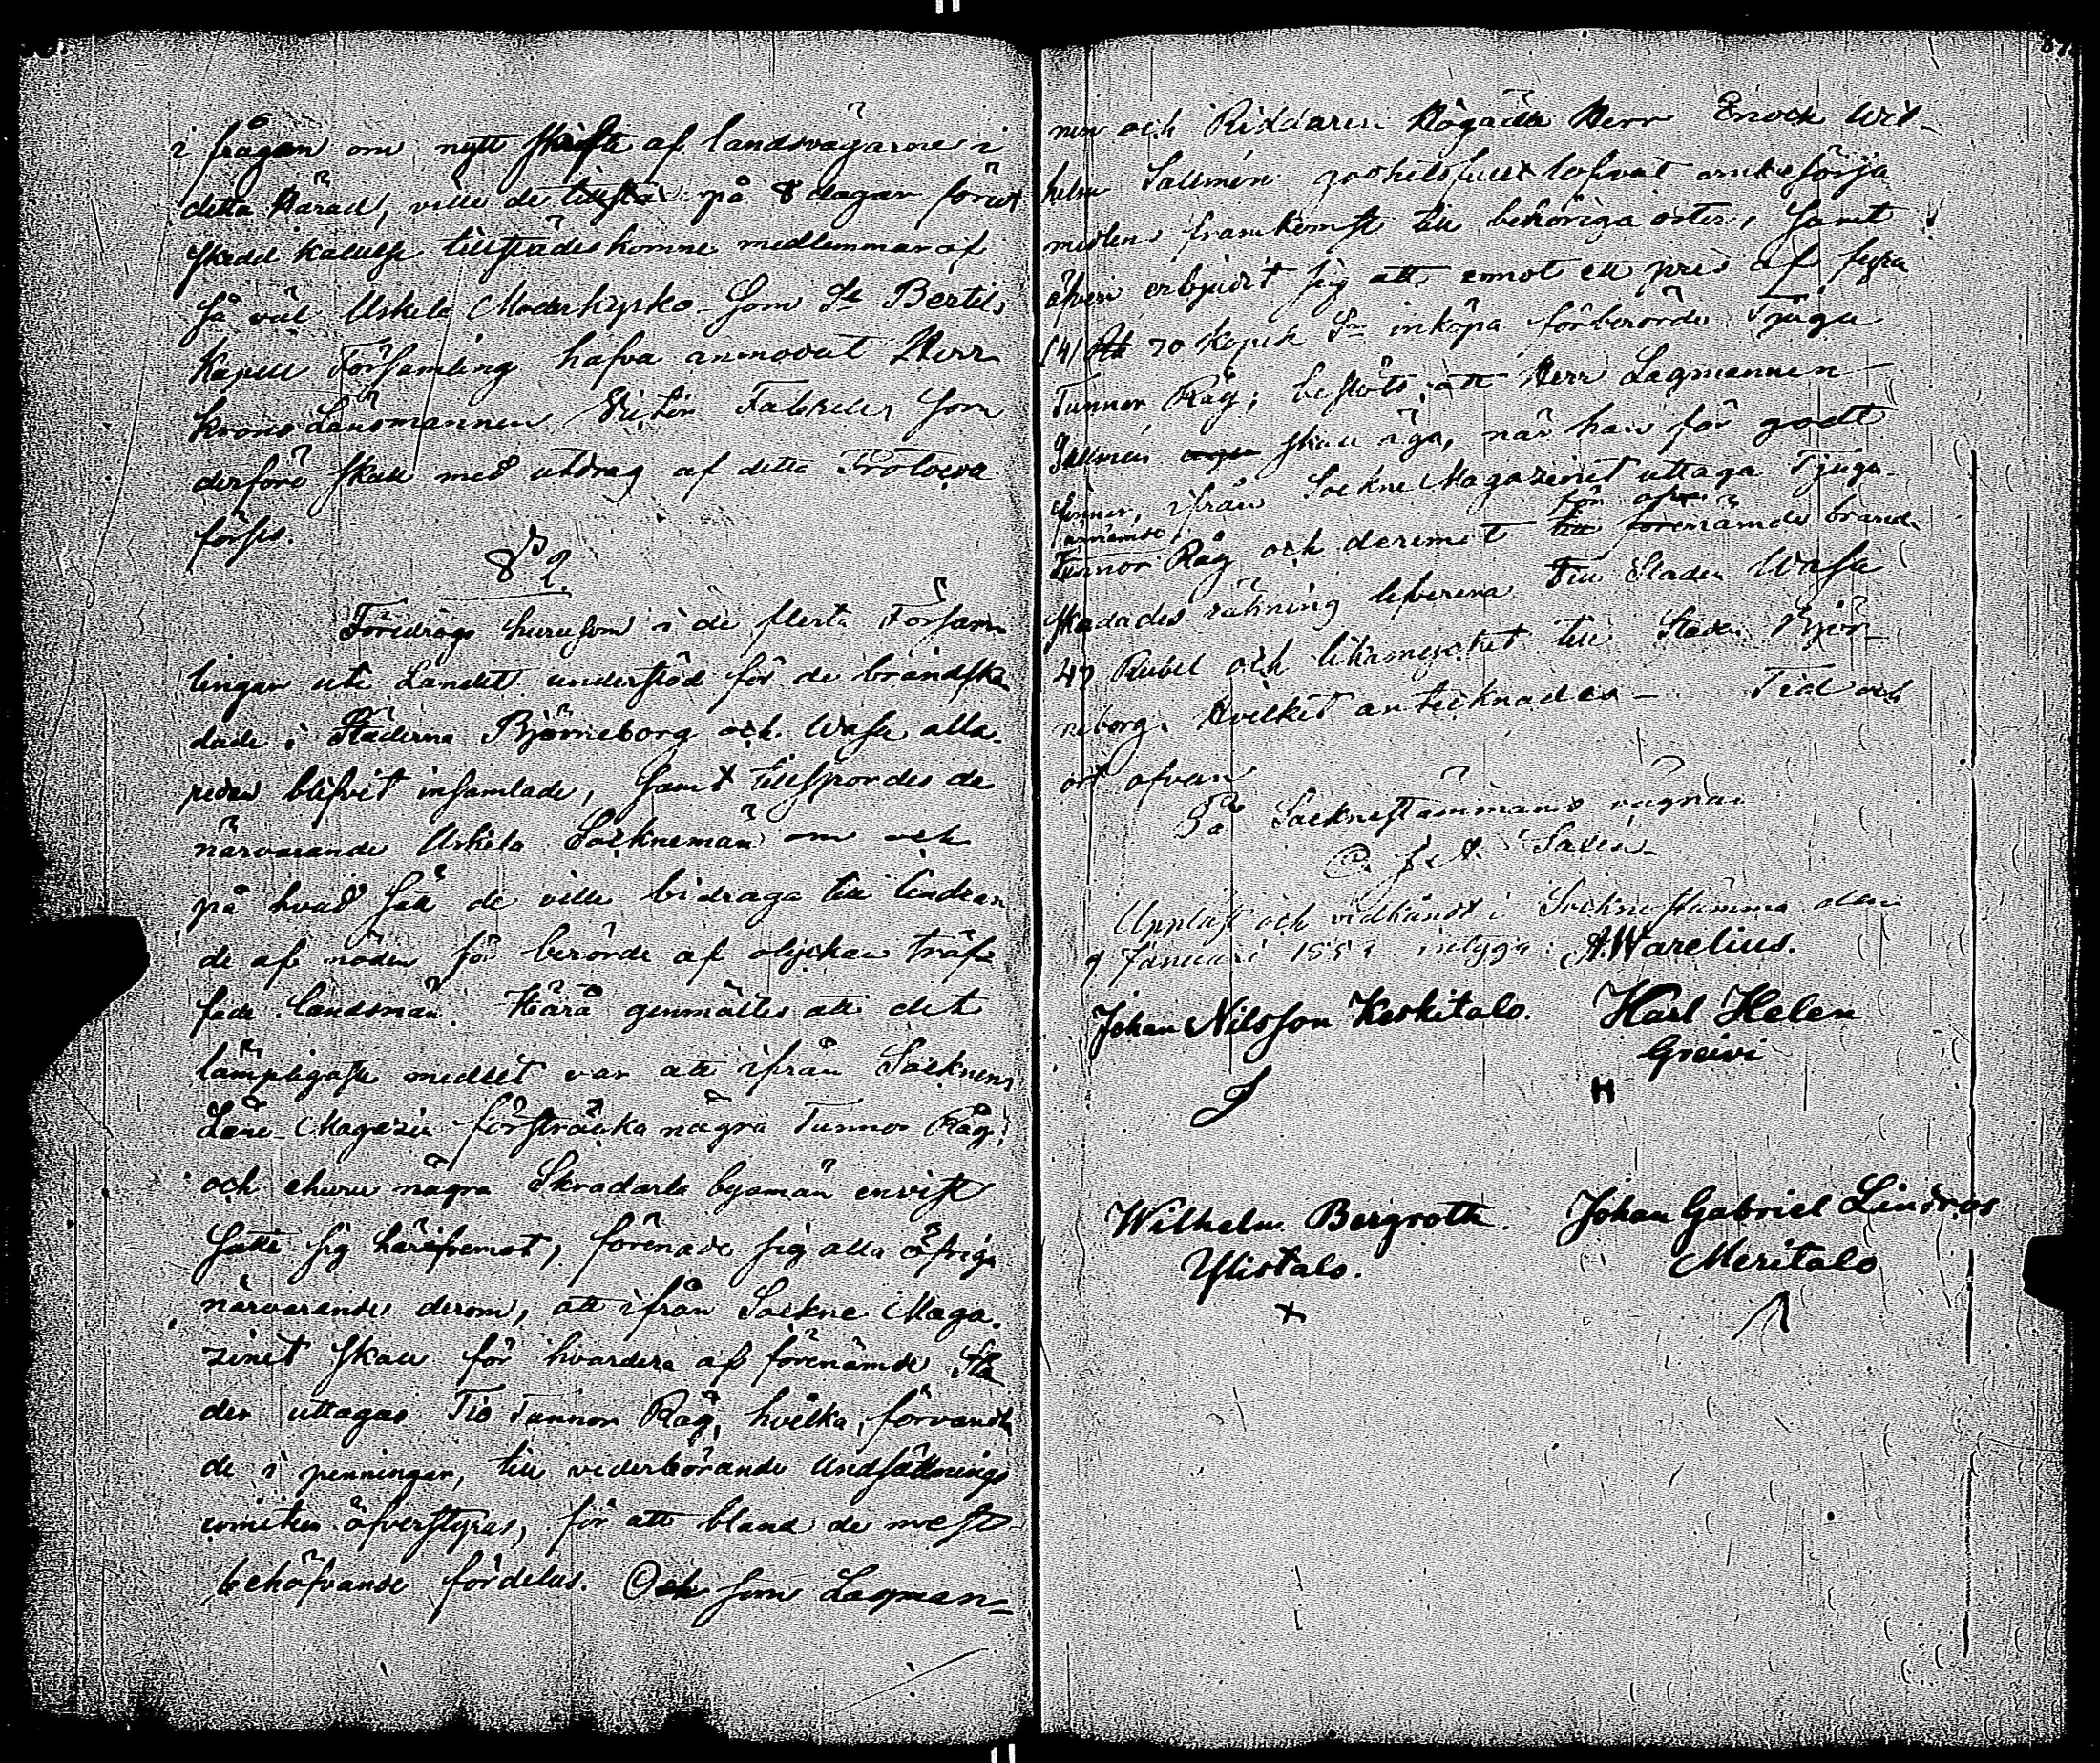 i frågan om nytt skifte af landsvägarne i
detta Härad, ville de tillstå på 8 dagar förut
skedd kallelse tillstädeskomne medlemmar af
så väl Uskela Moderkyrko- som St Bertils
Kapell Församling hafva anmodat Herr
Krono Länsmannen Fabritius som
derföre skall med utdrag af detta Protocoll
förses.
§ 2.
Föredrogs hurusom i de flesta Försam
lingar ute Landet understöd för de brandska
dade i Städerna Björneborg och Wasa alla
redan blifvit insamlade, samt tillspordes de
närvarande Uskela Sockenemän om och
på hvad sätt de ville bidraga till lindran
de af nöden för berörde af olyckan träf
fade landsmän. Härå genmältes att det
lämpligaste medlet var att ifrån Socknens
Låne-Magazin försträcka några Tunnor Råg;
och ehuru några Skradarla byamän envist
satte sig häremot, förenade sig alla öfriga
närvarande derom, att ifrån Sockne Maga
zinet skall för hvardera af förenämde Stä
der uttagas Tio Tunnor Råg, hvilka, förvandla
de i penningar, till vederbörande Undsättnings
comiteer öfverstyras, för att bland de mest
behöfvande fördelas. Och som Lagman-
nen och Riddaren Högädle Herr Enoch Wil-
helm Sallmén godhetsfullt lofvat ombesörja
medlens framkomst till behöriga orter, samt
äfven erbjudit sig att emot ett pris af fyra
(4) Rub 70 Kopek Sr inköpa förberörde Tjugu
Tunnor Råg; beslöts, att Herr Lagmannen
Sallmén skall äga, när han för godt
finner, ifrån Sockne Magazinet uttaga Tjugu
annämde
Tunnor Råg och deremot till för ofvannämde brand
skadades räkning leverera till Staden Wasa
47 Rubel och likamycket till Staden Björ-
neborg. Hvilket antecknades — Tid och
ort ofvan
På Socknestämmans vägnar
Salén
Uppläst och vidkändt i Socknestämma den
9 Januari 1853 intyga: A. Warelius.
Johan Nilsson Keskitalo. Karl Helen
Greivi
J H
Wilhelm Bergroth. Johan Gabriel Lindros
Ylistalo. Meritalo
x